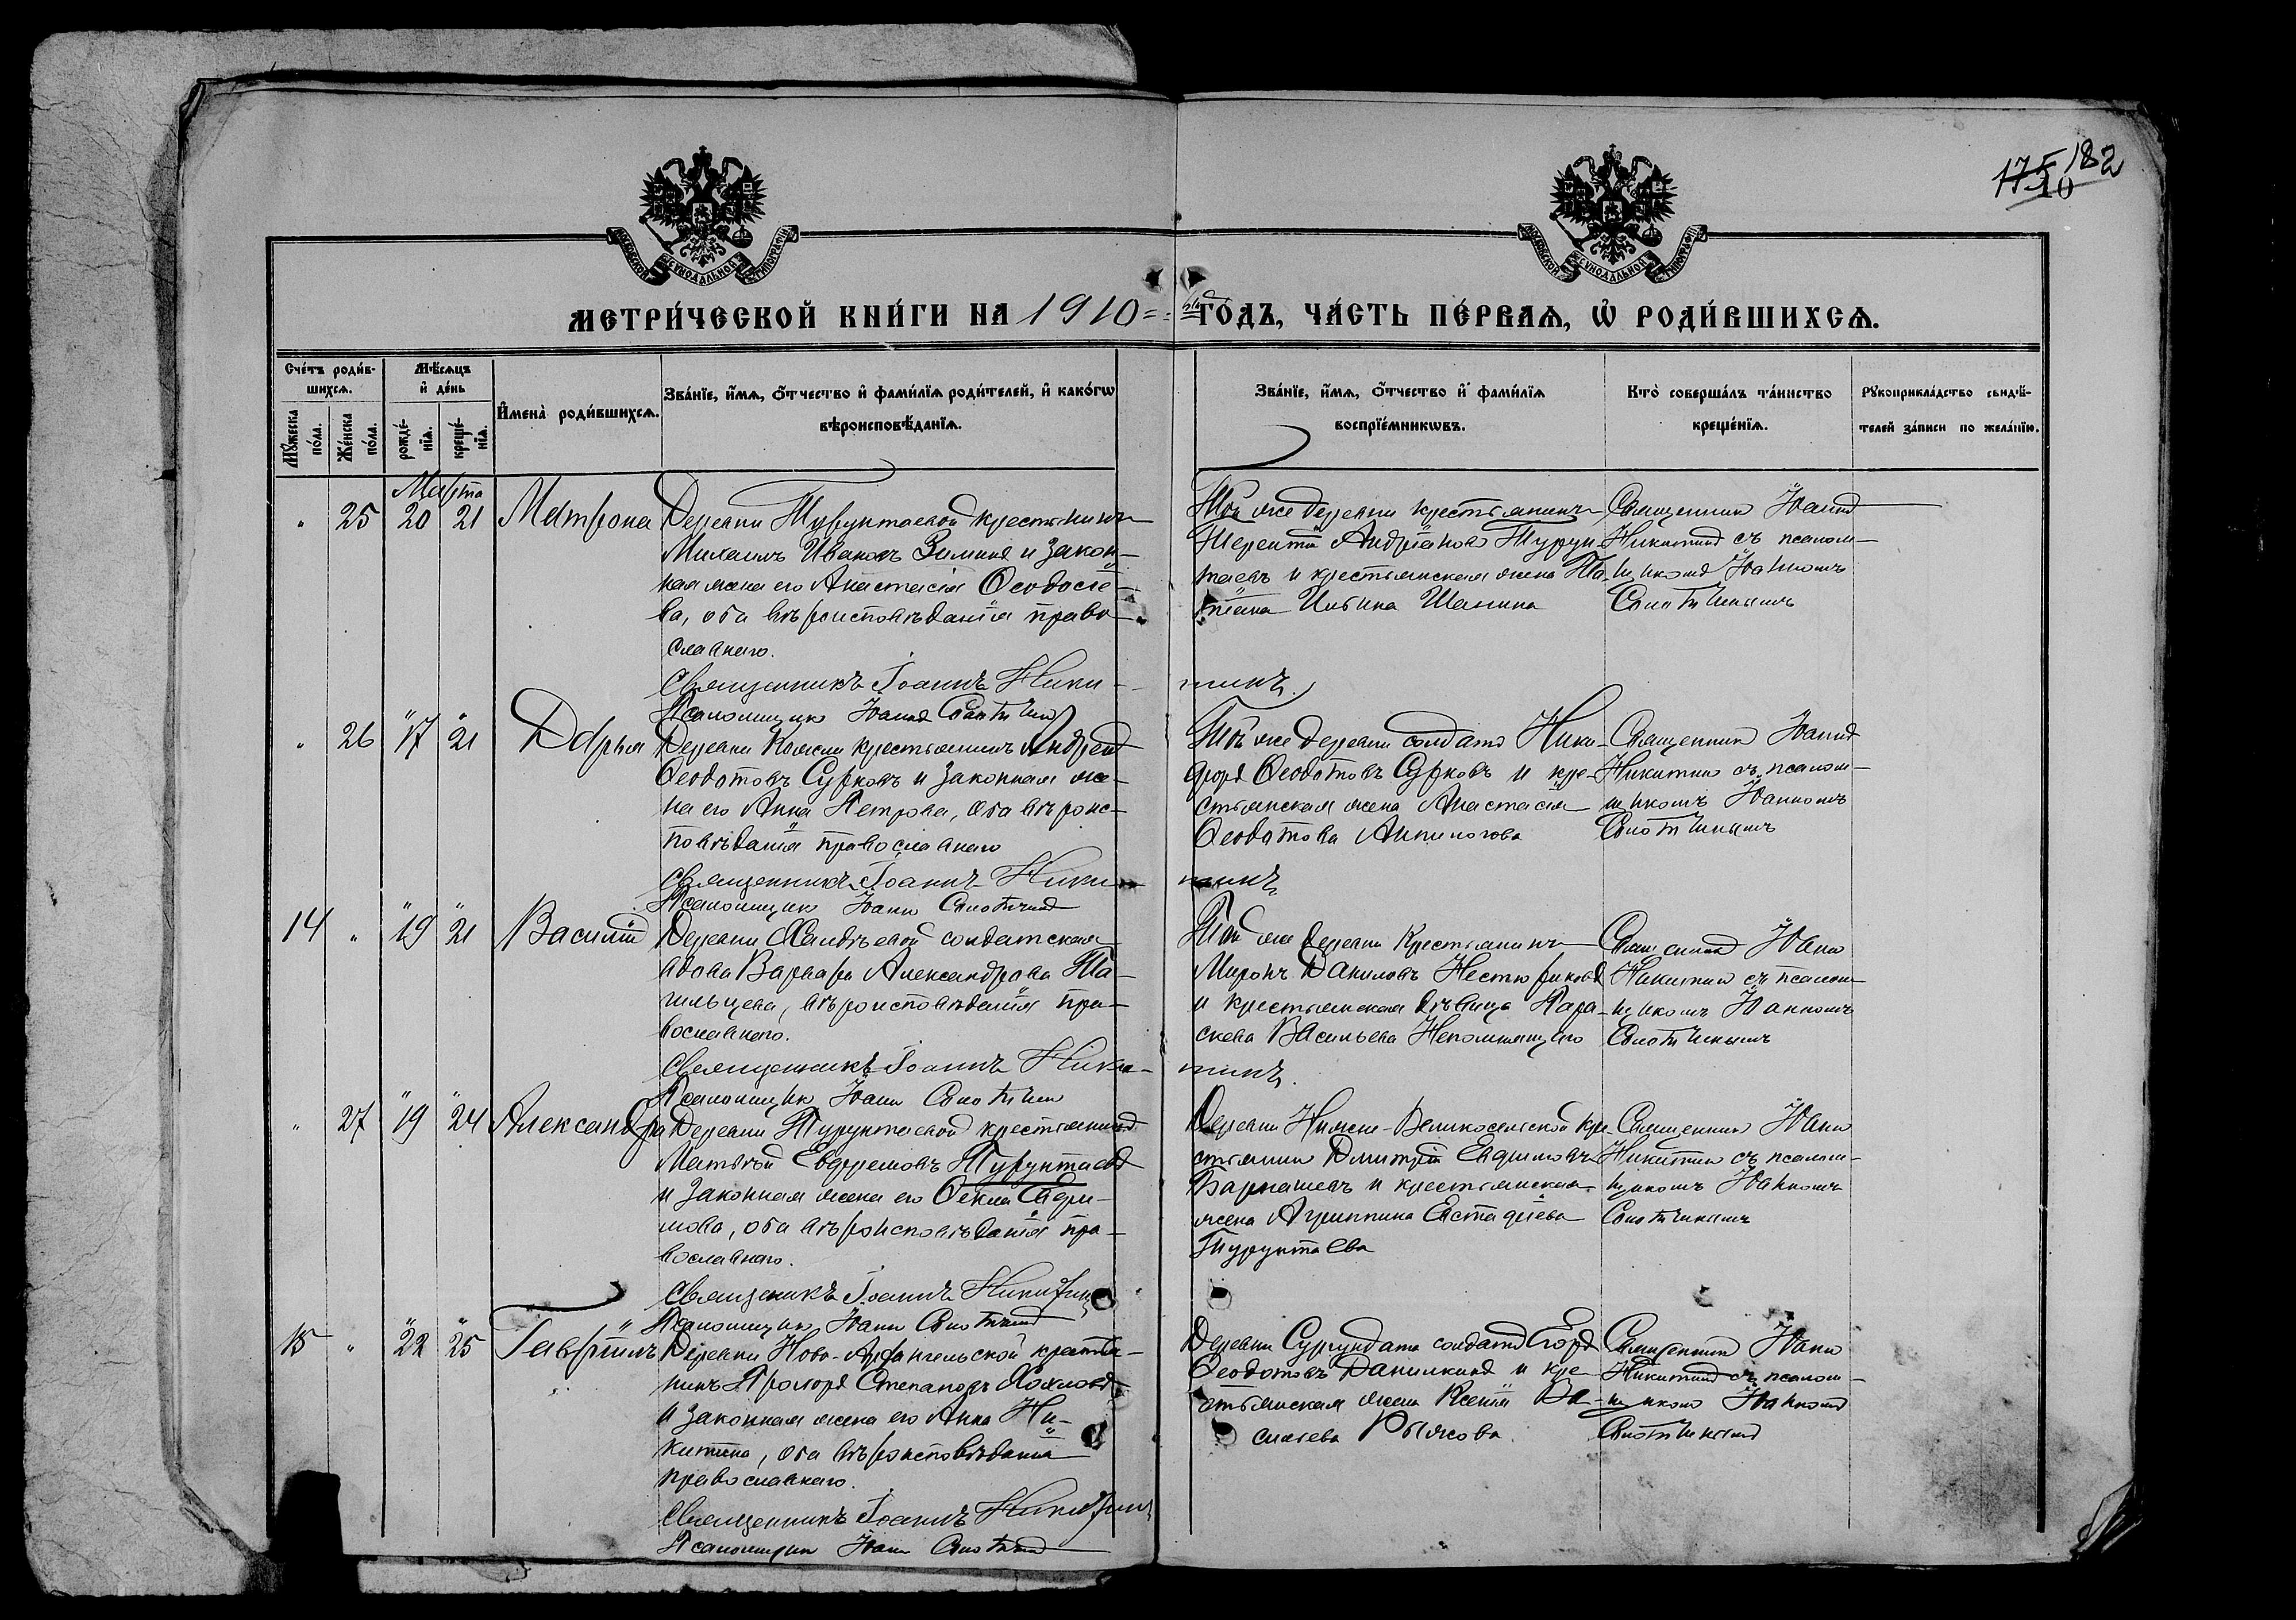 175 182
10
МОСКОВСКОЙ СѴНОДАЛЬНОЙ ТИПОГРАФІИ
МОСКОВСКОЙ СѴНОДАЛЬНОЙ ТИПОГРАФІИ
МЕТРИ́ЧЕСКОЙ КНИ́ГИ НА 1910 ый ГО́ДЪ, ЧА́СТЬ ПЕ́РВАѦ, Ѡ҆ РОДИ́ВШИХСѦ.
Сче́тъ роди́в-
шихсѧ.
Мꙋ́жеска по́ла.
Же́нска по́ла.
Мѣ́сѧцъ
и҆ де́нь
рожде́-
нїѧ.
креще́-
нїѧ.
И҆мена̀ роди́вшихсѧ.
Зва́нїе, и҆́мѧ, ѻ҆́тчество и҆ фами́лїѧ роди́телей, и҆ како́гѡ
вѣроисповѣ́данїѧ.
Зва́нїе, и҆́мѧ, ѻ҆́тчество и҆ фами́лїѧ
воспрїе́мникѡвъ.
Кто̀ соверша́лъ та́инство
креще́нїѧ.
Рꙋкоприкла́дство свидѣ́-
телей за́писи по жела́нїю.
Марта
" 25 20 21 Матрона
Деревни Турунтаевой крестьянинъ
Михаилъ Ивановъ Зиминъ и закон-
ная жена его Анастасія Ѳеодосіе-
ва, оба вѣроисповѣданія право-
славнаго.
Священникъ Іоаннъ Ники-
тинъ.
Псаломщикъ Іоаннъ
Той же деревни крестьянинъ
Терентій Андріановъ Турун-
таевъ и крестьянская жена Та-
тіана Шанина
Священникъ Іоаннъ
Никитинъ съ псалом-
щикомъ Іоанномъ
" 26 " 17 " 21 Дарья
Деревни крестьянинъ Андрей
Ѳеодотовъ Сурковъ и законная же-
на его Анна Петрова, оба вѣроис-
повѣданія православнаго
Священникъ Іоаннъ Ники-
тинъ
Псаломщикъ Іоаннъ
Той же деревни солдатъ Ники-
форъ Ѳеодотовъ Сурковъ и кре-
стьянская жена Анастасія
Ѳеодотова Анпилогова
Священникъ Іоаннъ
Никитинъ съ псалом-
щикомъ Іоанномъ
14 " " 19 " 21 Василій
Деревни солдатская
вдова Варвара Александрова Та-
гильцева, вѣроисповѣданія пра-
вославнаго.
Священникъ Іоаннъ Ники-
тинъ.
Псаломщикъ Іоаннъ
Той же деревни крестьянинъ
Миронъ Даниловъ
и крестьянская дѣвица Пара-
скева Васильева Непомнящаго
Священникъ Іоаннъ
Никитинъ съ псалом-
щикомъ Іоанномъ
" 27 " 19 " 24 Александра
Деревни Турунтаевой крестьянинъ
Матвѣй Евфремовъ Турунтаевъ
и законная жена его Ѳекла
мова, оба вѣроисповѣданія пра-
вославнаго.
Священникъ Іоаннъ Никитинъ
Псаломщикъ Іоаннъ
Деревни Нижне-Великосельской кре-
стьянинъ Димитрій Евфимовъ
Барнашевъ и крестьянская
жена Агриппина Евстафіева
Турунтаева
Священникъ Іоаннъ
Никитинъ съ псалом-
щикомъ Іоанномъ
15 " " 22 " 25 Гавріилъ
Деревни Ново-Архангельской крестья-
нинъ Прохоръ Степановъ
и законная жена его Анна Ни-
китина, оба вѣроисповѣданія
православнаго.
Священникъ Іоаннъ Никитинъ
Псаломщикъ Іоаннъ
Деревни Сургундата солдатъ Егоръ
Ѳеодотовъ Данилкинъ и кре-
стьянская жена Ксенія Ва-
сильева Рыжова
Священникъ Іоаннъ
Никитинъ съ псалом-
щикомъ Іоанномъ